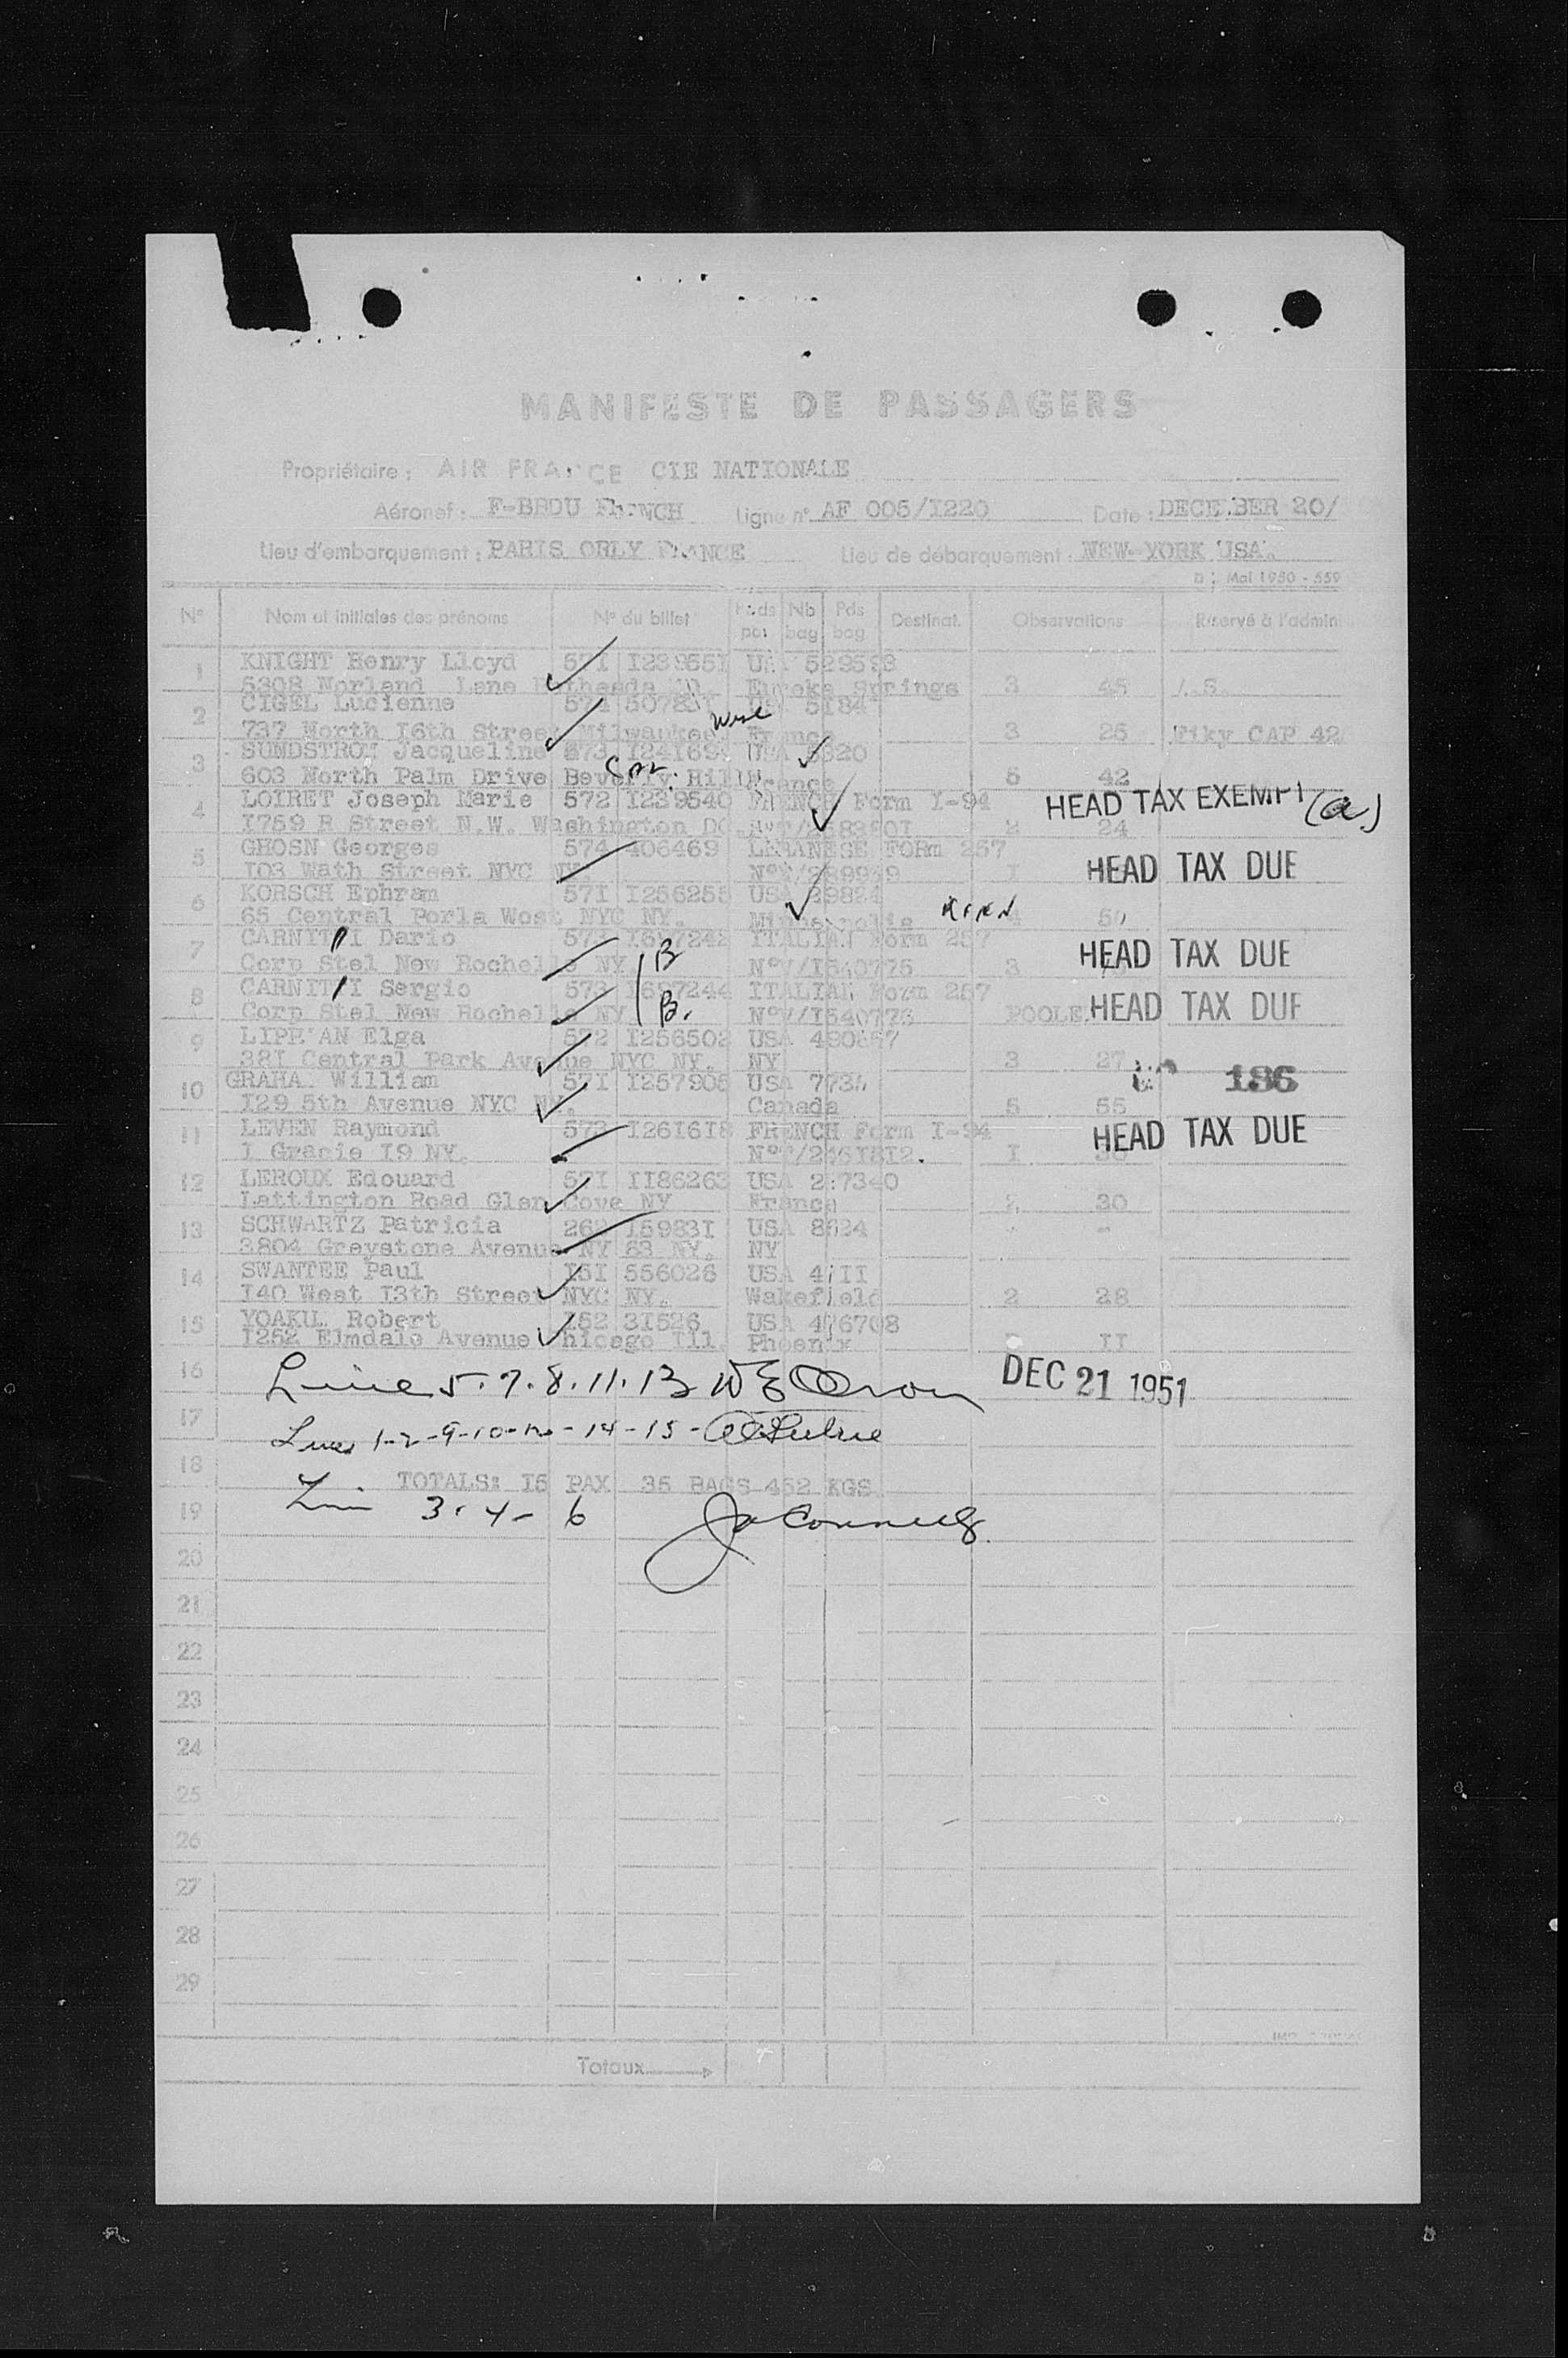 MANIFESTE DE PASSAGERS
Propriétaire : AIR FRANCE CIE NATIONALE
Aéronef : F-BBDU FRENCH Ligne n° AF 005/I220 Date : DECEMBER 20/
Lieu d'embarquement : PARIS ORLY FRANCE Lieu de débarquement : NEW-YORK USA.
Mai 1950 - 559
N° Nom et initiales des prénoms N° du billet Pds pas Nb bag Pds bag Destinat. Observations Réservé à l'admin
1 KNIGHT Henry Lloyd 571 I239551 USA 529593
5308 Norland Lane Bethesda Eureka Springs 3 45
2 CIGEL Lucienne 571 USA 5184
737 North I6th Street Milwaukee France 3 25 CAP 42
3 SUNDSTROM Jacqueline 573 USA
603 North Palm Drive Beverly Hills France 5 42
4 LOIRET Joseph Marie 572 I239540 FRENCH Form I-94 HEAD TAX EXEMPT (a)
I759 R Street N.W. Washington DC 2 24
5 GHOSN Georges 574 406469 LEBANESE FORm 257
I03 Wath Street NYC NY. I HEAD TAX DUE
6 KORSCH Ephram 57I I256255 USA 29824
65 Central Porla West NYC NY. Minneapolis 4 50
7 CARNITTI Dario 573 I697242 ITALIAN Form 257 B
Corp Stel New Rochelle NY N°V/I540775 3 HEAD TAX DUE
8 CARNITTI Sergio 573 I697244 ITALIAN Form 257 B.
Corp Stel New Rochelle NY N°V/I540776 POOLE HEAD TAX DUE
9 LIPPMAN Elga 572 I256502 USA
38I Central Park Avenue NYC NY. NY 3 27
10 GRAHAM William 57I I257905 USA 186
I29 5th Avenue NYC NY. Canada 5 55
11 LEVEN Raymond 573 I26I6I8 FRENCH Form I-94
I Gracie I9 NY. I HEAD TAX DUE
12 LEROUX Edouard 57I II86263 USA
Lattington Road Glen Cove NY France 2 30
13 SCHWARTZ Patricia 262 I5983I USA 8624
3804 Greystone Avenue NY 63 NY. NY
14 SWANTEE Paul I5I 556026 USA
I40 West I3th Street NYC NY. Wakefield 2 28
15 YOAKUM Robert I52 3I526 USA 476708
I252 Elmdale Avenue Chicago Ill Phoenix II
16 Line 5. 7. 8. 11. 13 DEC 21 1951
17 Lines 1-2-9-10-12-14-15-
18 TOTALS: I5 PAX 35 BAGS 452 KGS
19 3. 4- 6
20
21
22
23
24
25
26
27
28
29
Totaux